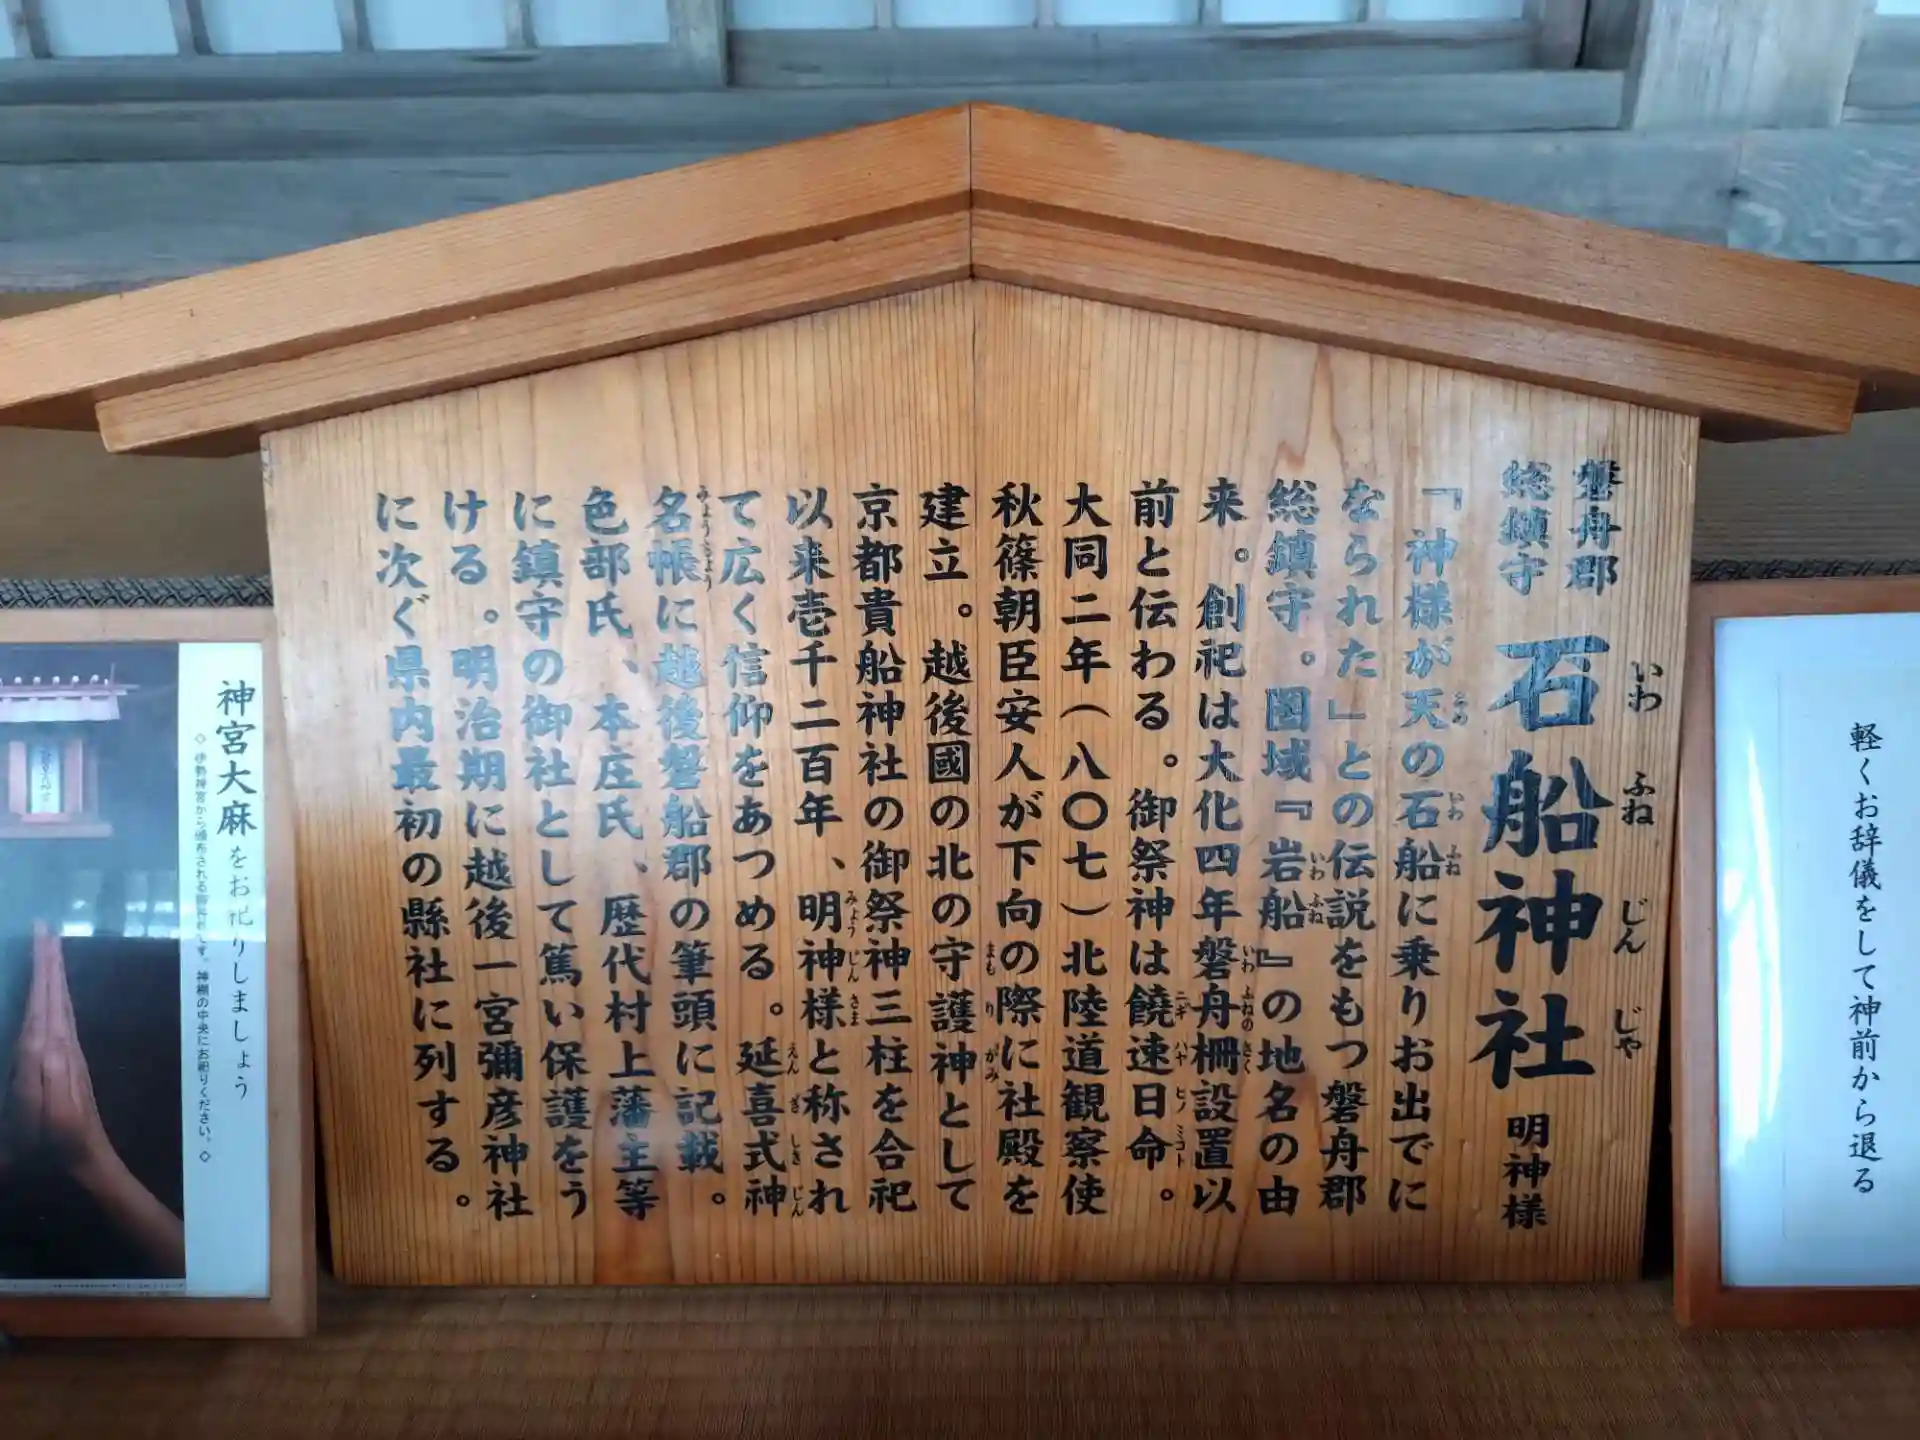 磐舟郡
総鎮守
石船神社 明神様
いわ ふね じん じゃ
『神様が天の石船に乗りお出でに
なられた」との伝説をもつ磐舟郡
総鎮守。圏域『岩船』の地名の由
来。創祀は大化四年磐舟柵設置以
前と伝わる。御祭神は饒速日命。
大同二年(八〇七)北陸道観察使
秋篠朝臣安人が下向の際に社殿を
建立。越後國の北の守護神として
京都貴船神社の御祭神三柱を合祀
以来壱千二百年、明神様と称され
て広く信仰をあつめる。延喜式神
名帳に越後磐船郡の筆頭に記載。
色部氏、本庄氏、歴代村上藩主等
に鎮守の御社として篤い保護をう
ける。明治期に越後一宮彌彦神社
に次ぐ県内最初の縣社に列する。
軽くお辞儀をして神前から退る
神宮大麻をお祀りしましょう
神棚の中央にお祀りください。◇